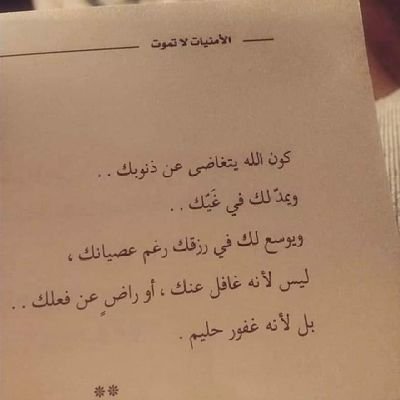 الأمنيات لا تموت
كون الله يتغاضى عن ذنوبك . .
ويمدّ لك في غَيّك . .
ويوسع لك في رزقك رغم عصيانك ،
ليس لأنه غافل عنك ، أو راضٍ عن فعلك . .
بل لأنه غفور حليم .
**